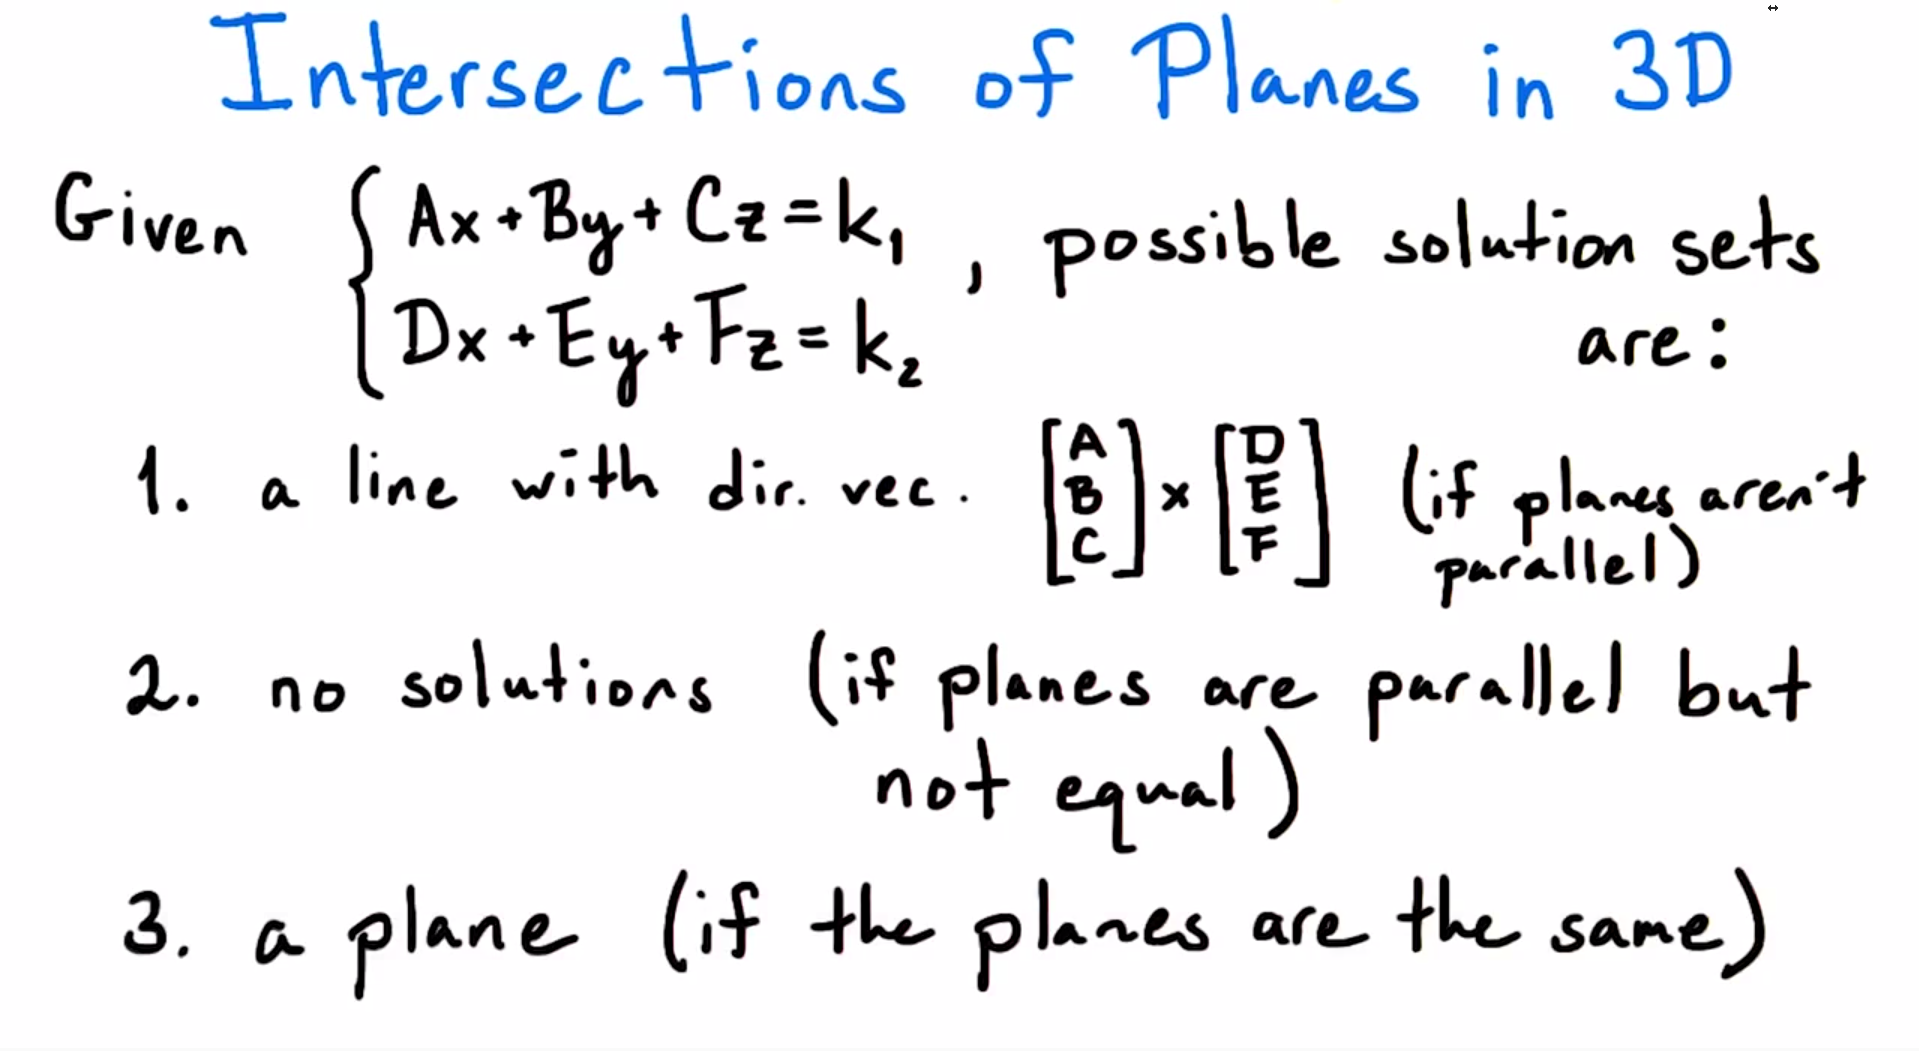 Intersections of Planes in 3D
Given { Ax + By + Cz = k₁ , possible solution sets
Dx + Ey + Fz = k₂ are:
1. a line with dir. vec. [A B C] × [D E F] (if planes aren't
parallel)
2. no solutions (if planes are parallel but
not equal)
3. a plane (if the planes are the same)